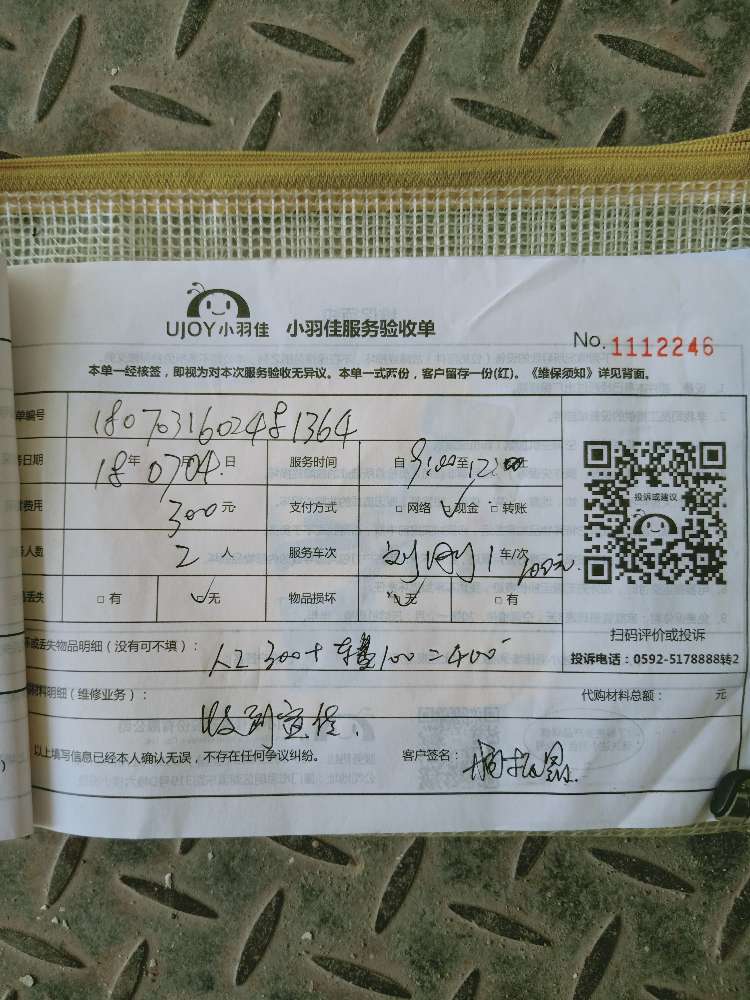 UJOY小羽佳 小羽佳服务验收单
No. 1112246
本单一经核签，即视为对本次服务验收无异议。本单一式两份，客户留存一份(红)。《维保须知》详见背面。
单编号 1807031602481364
务日期 18年0704日 服务时间 自9:00至12:00止
费用 300元 支付方式 □网络 ☑现金 □转账
人数 2人 服务车次 1车/次 100元
丢失 □有 ☑无 物品损坏 ☑无 □有
投诉或建议
扫码评价或投诉
投诉电话：0592-5178888转2
坏或丢失物品明细（没有可不填）： 人工300+车费100=400
材料明细（维修业务）： 代购材料总额： 元
收到宣传.
以上填写信息已经本人确认无误，不存在任何争议纠纷。 客户签名：